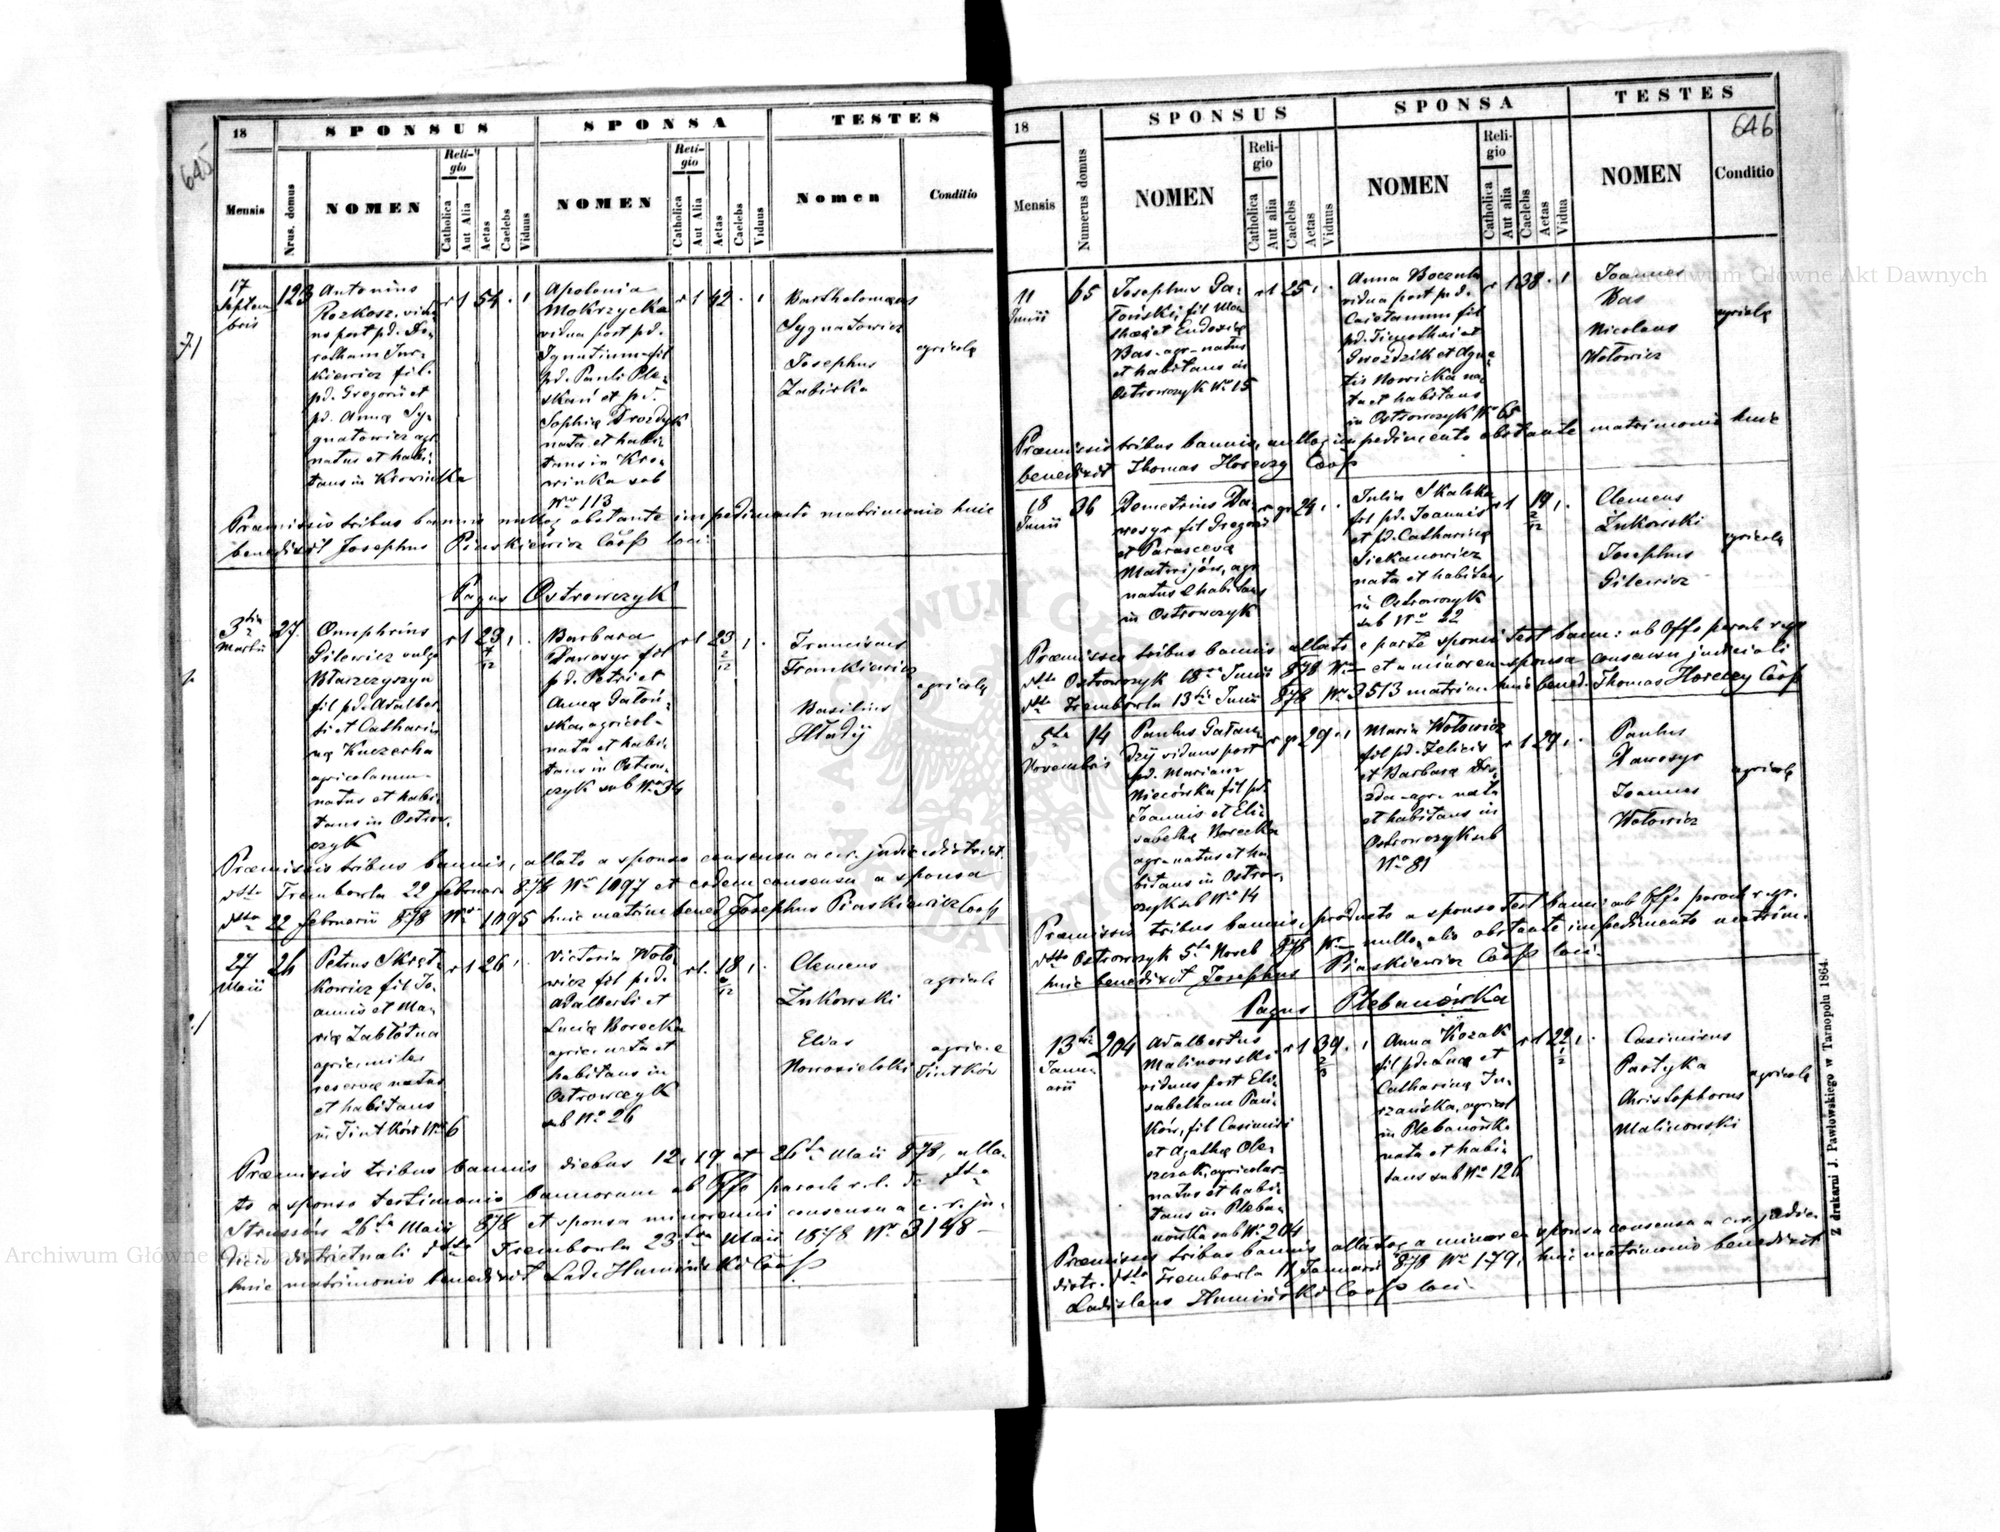 645
18
SPONSUS
SPONSA
TESTES
Mensis
Nrus. domus
NOMEN
Religio
Catholica
Aut Alia
Aetas
Caelebs
Viduus
NOMEN
Religio
Catholica
Aut Alia
Aetas
Caelebs
Viduus
Nomen
Conditio
17
Septem
bris
123
Antonius
Rozkosz, vidu
us post pd. Do-
rotheam Jur-
kiewicz fil.
pd. Gregorii et
pd. Anna Sy-
gnatowicz agr.
natus et habi-
tans in Krowinka
r 1 54 . 1
Apolonia
Mokrzycka
vidua post pd.
Ignatium fil
pd. Pauli Ple-
skań et pd.
Sophia Drozdyk
nata et habi-
tans in Kro-
winka sub
Nro 113
r 1 42 . 1
Bartholomaeus
Sygnatowicz
Josephus
Zabirka
agricola
Praemissis tribus bannis nulloq obstante impedimento matrimonio huic
benedixit Josephus Piaskiewicz Coop loci
Pagus Ostrowczyk
3tia
Martii
27.
Onuphrius
Gilewicz vulgo
Blaszczyszyn
fil pd. Adalber-
ti et Cathari-
na Kuczerha
agricolarum
natus et habi-
tans in Ostrow-
czyk
r 1 23 1 .
Barbara
Dawosyr fil
pd. Petri et
Anna Gatoń-
ska agricol-
nata et habi-
tans in Ostrow-
czyk sub Nro 34
r 1 23 2/12 1 .
Franciscus
Frankiewicz
Basilius
Hladij
agricola
Praemissis tribus bannis, allato a sponso consensu a c. r. judicio district.
dtto Trembowla 22 februar 878 Nro 1097 et eodem consensu a sponsa
dtto 22 februarii 878 Nro 1095 huic matrim bened Josephus Piaskiewicz Coop
27
Maii
26
Petrus Skręt-
kowicz fil Jo-
annis et Ma-
ria Zabłotna
agric. miles
reserva natus
et habitans
in Tiutków Nro 6
r 1 26 1 .
Victoria Woło-
wicz fil pd.
Adalberti et
Lucia Borecka
agric. nata et
habitans in
Ostrowczyk
sub Nro 26
r 1 . 18 1 .
Clemens
Żukowski
Elias
Nowosielski
agricola
agric. e
Tiutków
Praemissis tribus bannis diebus 12, 19 et 26ta Maii 878, alla-
to a sponso testimonio bannorum ab Offo paroch r. l. de dtto
Strussów 26ta Maii 878 et sponsa minorenni consensu a c. r. ju-
dicio districtuali dtto Trembowla 23tia Maii 1878 Nro 3148 -
huic matrimonio benedixit Lad. Humiński Coop.
646
18
SPONSUS
SPONSA
TESTES
Mensis
Numerus domus
NOMEN
Religio
Catholica
Aut alia
Caelebs
Aetas
Viduus
NOMEN
Religio
Catholica
Aut alia
Caelebs
Aetas
Vidua
NOMEN
Conditio
11
Junii
65
Josephus Ga-
toński, fil Mat-
thaei et Eudoxia
Bas - agr. natus
et habitans in
Ostrowczyk Nro 15
r 1 25 1 .
Anna Boczula
vidua post pd.
Caietanum fil
pd. Timothei et
Gwoździk et Agne-
tis Nowicka na-
ta et habitans
in Ostrowczyk Nro 65
r 1 38 . 1
Joannes
Bas
Nicolaus
Wołowicz
agricola
Praemissis tribus bannis, nulloq impedimento obstante matrimonio huic
benedixit Thomas Horeczy Coop
18
Junii
36
Demetrius Da-
wosyr fil Gregorii
et Parasceva
Matwijów, agr
natus & habitans
in Ostrowczyk
r gr 24 1 .
Julia Skalska
fil pd. Joannis
et pd. Catharina
Siekanowicz
nata et habitans
in Ostrowczyk
sub Nro 22
r 1 19 2/12 1 .
Clemens
Żukowski
Josephus
Gilewicz
agricola
Praemissis tribus bannis, allato e parte sponsi test bann: ab Offo paroch r. gr
dtto Ostrowczyk 18va Junii 878 Nro — et a minoren sponsa consensu judiciali
dtto Trembowla 13tia Junii 878 Nro 3513 matrim. huic bened. Thomas Horeczy Coop
5ta
Novembris
14
Paulus Gałan-
dzij viduus post
pd. Mariam
Niecórska fil pd.
Joannis et Eli-
sabetha Borecka
agr. natus et ha
bitans in Ostrow-
czyk sub Nro 14
r gr 29 . 1
Maria Wołowicz
fil pd. Felicis
et Barbara Dro-
zda - agr. nata
et habitans in
Ostrowczyk sub
Nro 81
r 1 29 1 .
Paulus
Dawosyr
Joannes
Wołowicz
agricola
Praemissis tribus bannis, producto a sponso test bann: ab Offo paroch r. gr.
dtto Ostrowczyk 5ta Noveb 878 Nro — nulloq alio obstante impedimento matrim.
huic benedixit Josephus Piaskiewicz Coop loci.
Pagus Plebanówka
13tia
Janu-
arii
204
Adalbertus
Malinowski
viduus post Eli-
sabetham Pań-
ków, fil Casimiri
et Agatha Ole-
szczak, agricolar-
natus et habi-
tans in Pleba-
nówka sub Nr 204
r 1 39 . 1
Anna Kozak
fil pd. Luca et
Catharina Ju-
rzańska, agricol
in Plebanówk
nata et habi-
tans sub Nro 126
r 1 22 1 .
Casimirus
Partyka
Christophorus
Malinowski
agricola
Praemissis tribus bannis allatoq a minoren sponsa consensu a c. r. judic.
distr. dtto Trembowla 11 Januarii 878 Nro 179, huic matrimonio benedixit
Ladislaus Humiński Coop loci.
Z drukarni J. Pawłowskiego w Tarnopolu 1864.
Archiwum Główne Akt Dawnych
Archiwum Główne Akt Dawnych